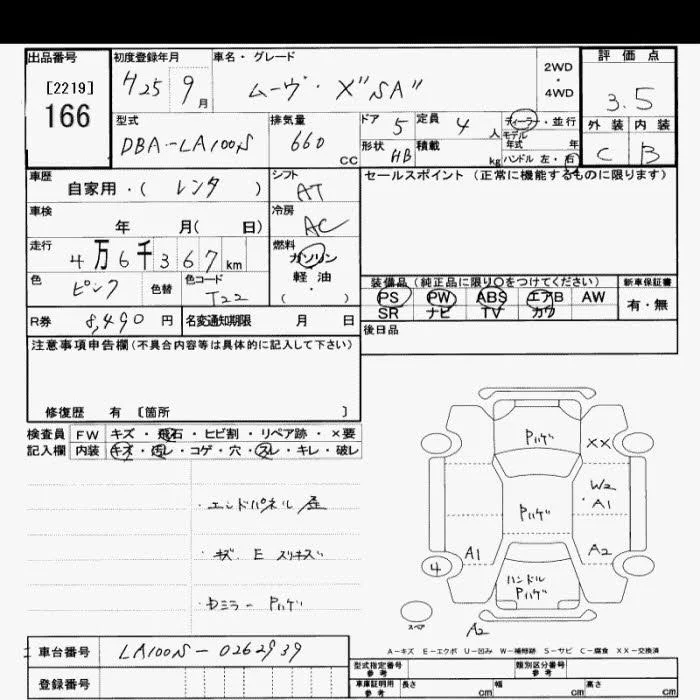 出品番号
[2219]
166
初度登録年月
H25 9月
車名・グレード
ムーヴ・X"SA"
2WD
・
4WD
評価点
3.5
型式
DBA-LA100S
排気量
660 CC
ドア 5
定員 4 人
ディーラー・並行
モデル
年式 年
形状 HB
積載 kg
ハンドル 左・右
外装 内装
C B
車歴
自家用・( レンタ )
シフト
AT
セールスポイント (正常に機能するものに限ります)
車検
年 月( 日)
冷房
AC
走行
4万6千367km
燃料
ガソリン
軽・油
・
( )
色
ピンク
色替
色コード
T22
装備品(純正品に限り○をつけてください)
新車保証書
PS PW ABS エアB AW
SR ナビ TV カワ
有・無
R券 8,490 円
名変通知期限 月 日
後日品
注意事項申告欄(不具合内容等は具体的に記入して下さい)
修復歴 有 [箇所 ]
検査員 FW キズ・飛石・ヒビ割・リペア跡・×要
記入欄 内装 キズ・汚レ・コゲ・穴・スレ・キレ・破レ
・エンドパネル
・キズ. E スリキズ
・ミラー Pハゲ
Pハゲ
XX
W2
・A1
Pハゲ
A1
A2
4
ハンドル
Pハゲ
スペア
A2
A-キズ E-エクボ U-凹み W-補修跡 S-サビ C-腐食 XX-交換済
車台番号 LA100S-0262939
型式指定番号
参考
類別区分番号
参考
登録番号
車庫証明用
参考
長さ cm
幅 cm
高さ cm